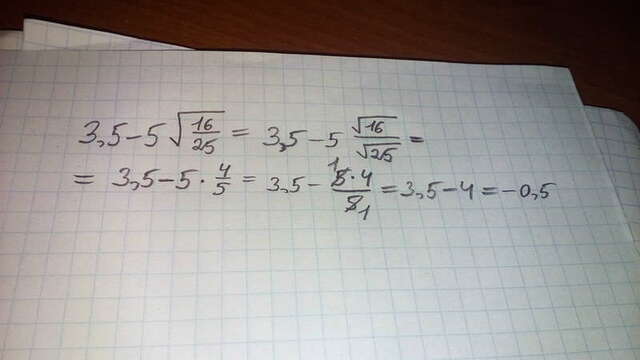 3,5-5√(16/25) = 3,5-5 √16/√25 =
= 3,5-5·4/5 = 3,5-5·4/5 1 1 = 3,5-4 = -0,5